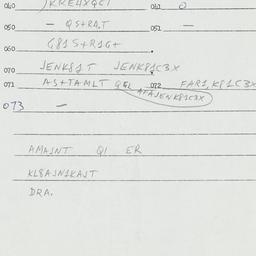 040 JKRE4XQCI 041 0
050 - QS+RA,T 051 -
060 G81S+R1G+ .
070 JENK81T JENK81C3X
071 AS+TAMLT 072 FAR1,K81C3X
ATAJENK81C3X
073 -
AMAJNT QI ER
KL8AJN1KAJT
DRA.